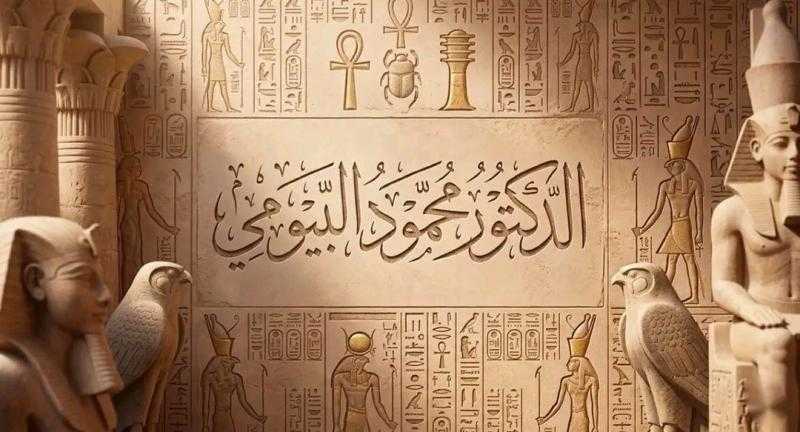 الدُّكتُورُ مُحَمَّودُ البَّيَوَمِي